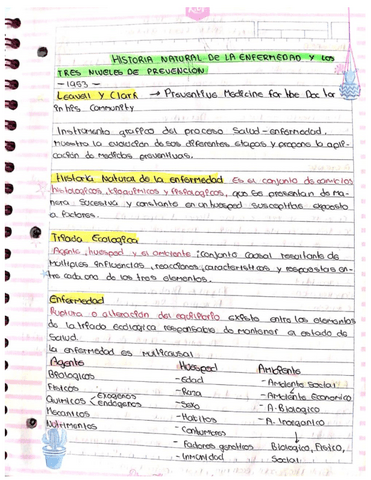 HISTORIA NATURAL DE LA ENFERMEDAD Y LOS
TRES NIVELES DE PREVENCIÓN
- 1953 -
Leavell y Clark → Preventive Medicine for the Doctor
in his Community
Instrumento grafico del proceso Salud-enfermedad.
Muestra la evolución de sus diferentes etapas y propone la apli-
cación de medidas preventivas.
Historia Natural de la enfermedad Es el conjunto de cambios
histologicos, bioquimicos y fisiologicos, que se presentan de ma-
nera sucesiva y constante en un huesped susceptible expuesto
a factores.
Triada Ecologica
Agente, huesped y el ambiente; conjunto causal resultante de
multiples influencias, reacciones, caracteristicas y respuestas en-
tre cada uno de los tres elementos.
Enfermedad
Ruptura o alteración del equilibrio existe entre los elementos
de la triada ecologica responsable de mantener el estado de
Salud.
la enfermedad es multicausal
Agente Huesped Ambiente
Biologicos - Edad - Ambiente Social
Fisicos - Raza - Ambiente Economico
Quimicos < Exogenos Endogenos - Sexo - A. Biologico
Mecanicos - Habitos - A. Inorganico
Nutrimentos - Costumbres ↓
- Factores geneticos Biologico, Fisico,
- Inmunidad Social